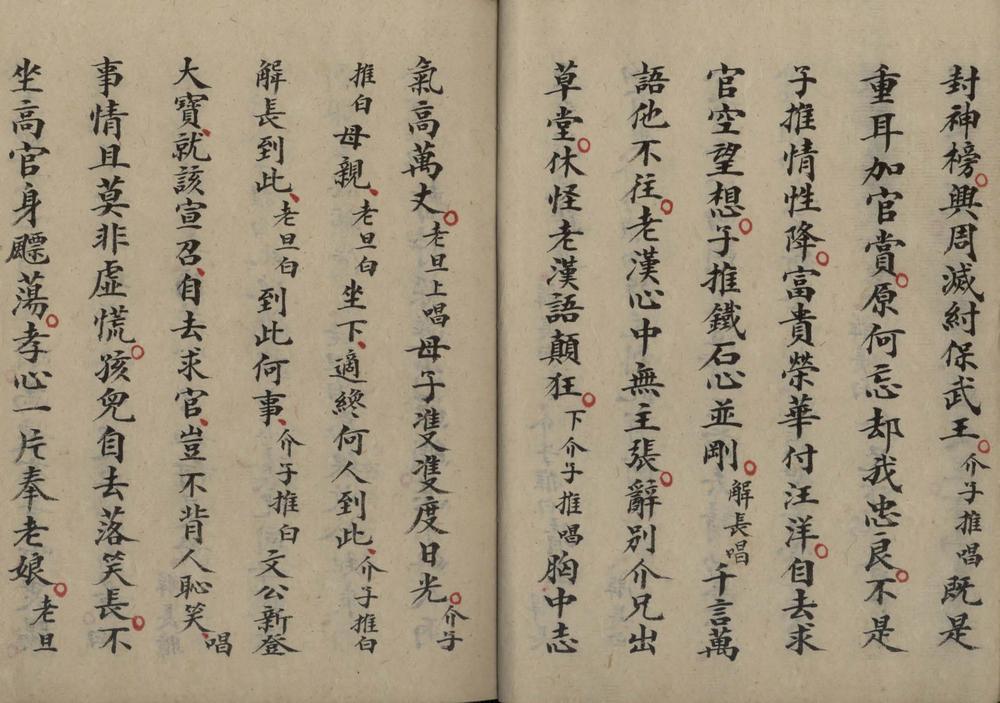 封神榜興周滅紂保武王介子推唱既是
重耳加官賞原何忘却我忠良不是
子推情性降富貴榮華付汪洋自去求
官空望想子推鐵石心並剛解長唱千言萬
語他不往老漢心中無主張辭別介兄出
草堂休怪老漢語顛狂下介子推唱胸中志
氣高萬丈老旦上唱母子雙雙度日光介子
推白母親老旦白坐下適終何人到此介子推白
解長到此老旦白到此何事介子推白文公新登
大寶就該宣召自去求官豈不背人恥笑唱
事情且莫非虛慌孩兒自去落笑長不
坐高官身飃蕩孝心一片奉老娘老旦